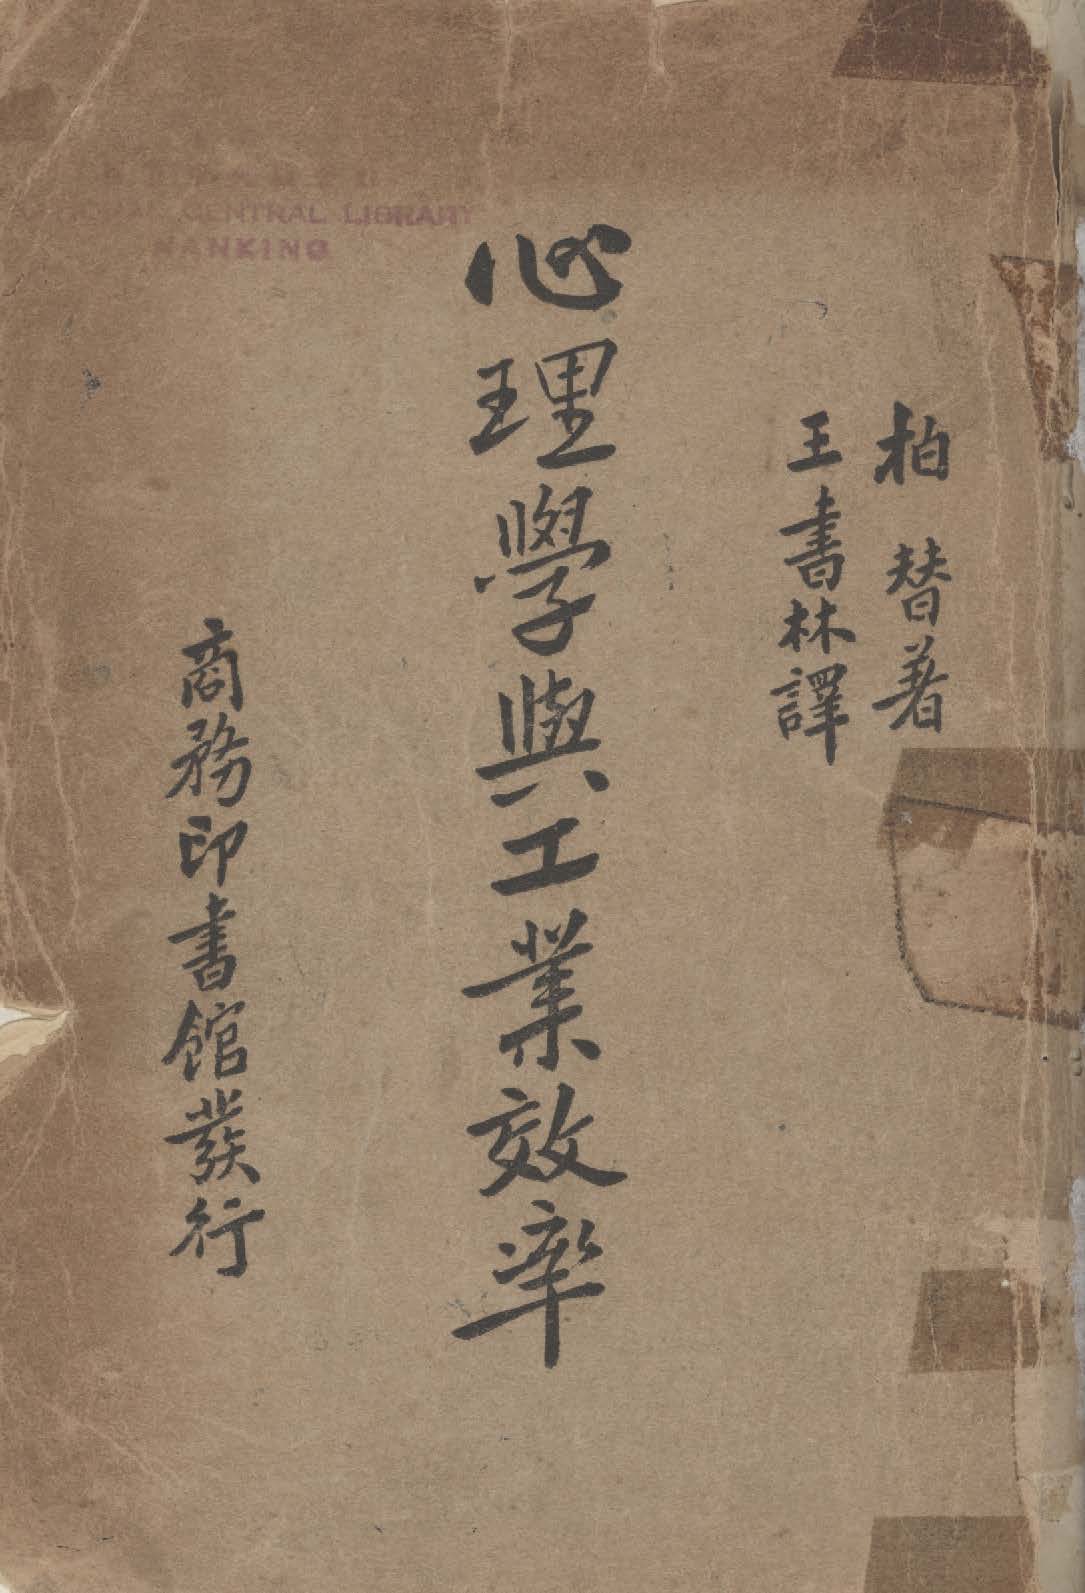 柏替著
王書林譯
心理學與工業效率
商務印書館發行
NATIONAL CENTRAL LIBRARY
NANKING